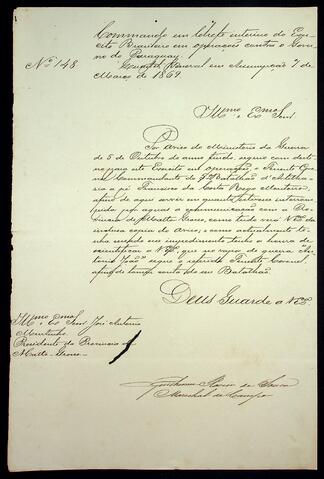 Commando em Chefe interino do Exer-
cito Brasileiro em operações contra o Gover-
no do Paraguay.
Nº 148
Quartel General em Assumpção 7 de
Março de 1869.
Illmo e Exmo Senr
Por Aviso do Ministerio da Guerra
de 5 de Outubro do anno findo, seguio com desti-
no para este Exercito em operações, o Tenente Coro-
nel Commandante do 2º Batalhão d'Artilhe-
ria a pé Francisco da Costa Rego Monteiro,
afim de aqui servir em quanto estivesse interrom-
pida por agua a communicação com a Pro-
vincia de Matto Grosso, como tudo verá V. Exª da
inclusa copia do Aviso; e como actualmente te-
nha cessado esse impedimento tenho a honra de
scientificar a V. Exª que no vapor de guerra "An-
tonio João" segue o referido Tenente Coronel,
afim de tomar conta do Batalhão.
Deus Guarde a V. Exª
Illmo e Exmo Senr José Antonio
Murtinho
Presidente da Provincia de
Matto-Grosso
Guilherme Xavier de Souza
Marechal de Campo